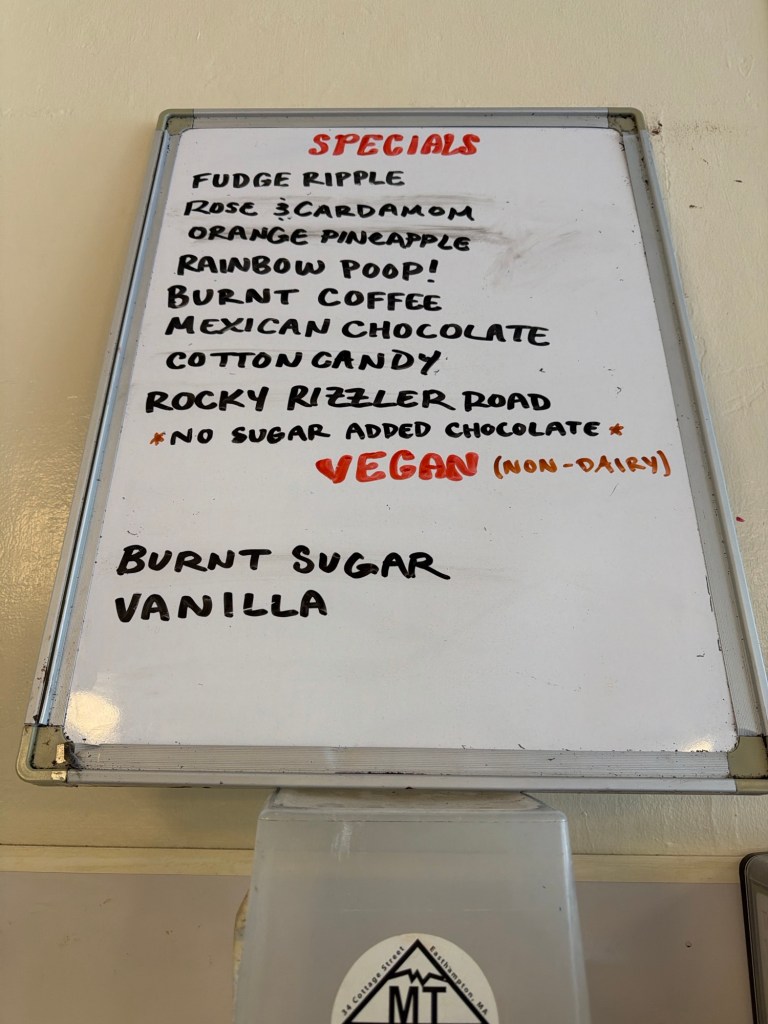 SPECIALS
FUDGE RIPPLE
ROSE & CARDAMOM
ORANGE PINEAPPLE
RAINBOW POOP!
BURNT COFFEE
MEXICAN CHOCOLATE
COTTON CANDY
ROCKY RIZZLER ROAD
*NO SUGAR ADDED CHOCOLATE*
VEGAN (NON-DAIRY)
BURNT SUGAR
VANILLA
34 Cottage Street Easthampton, MA
MT